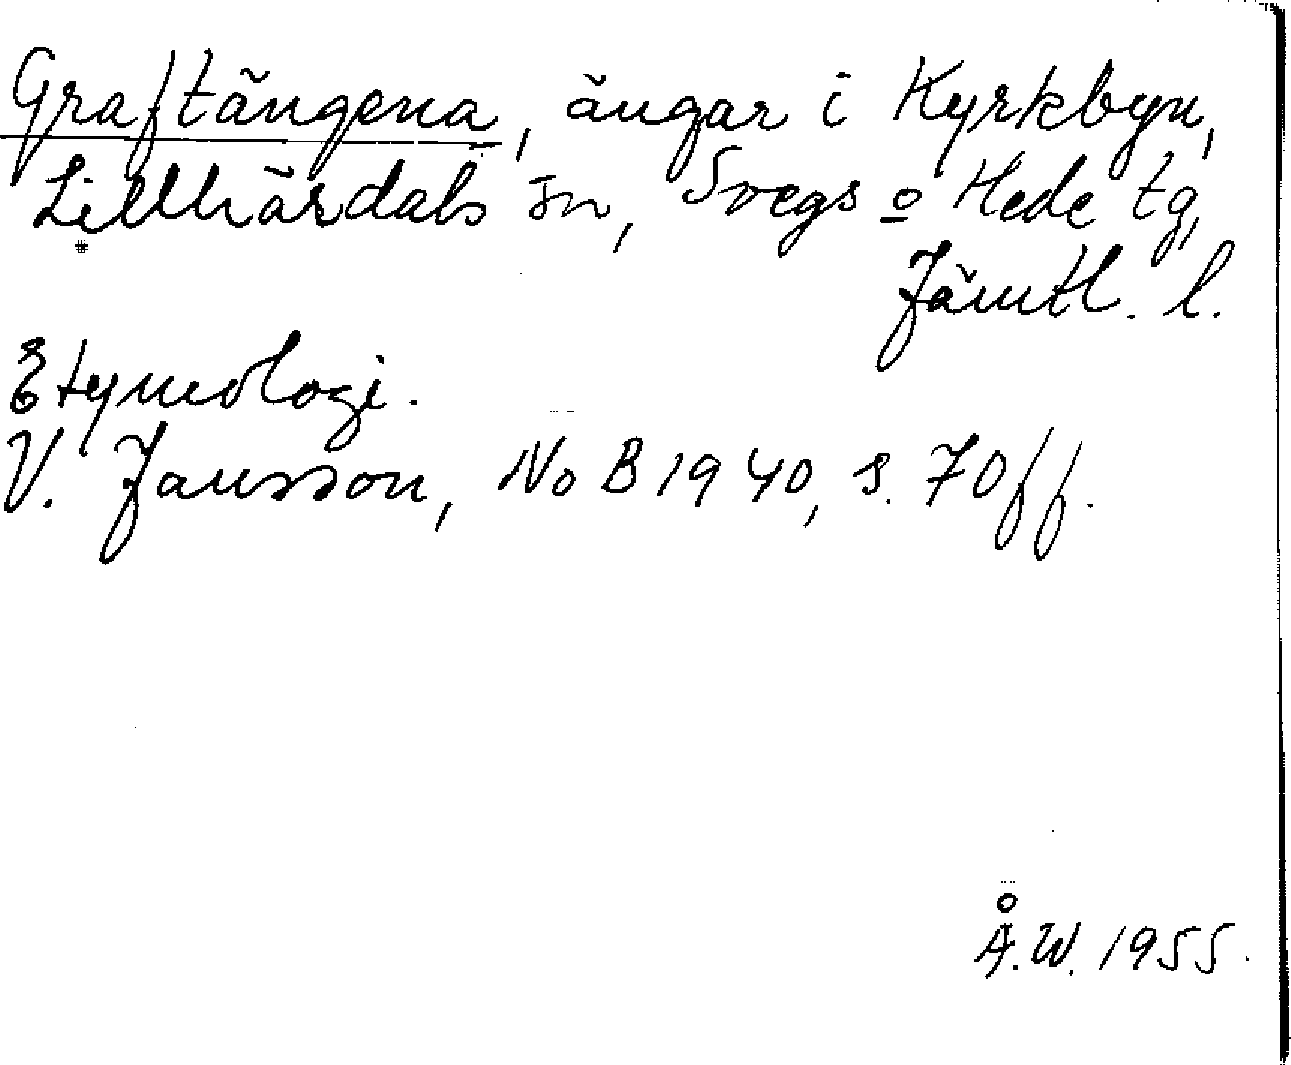 Graftängena, ängar i Kyrkbyn,
Lillhärdals sn, Svegs o Hede tg,
Jämtl. l.
Etymologi.
V. Jansson, NoB 1940, s. 70ff.
Å.W. 1955.